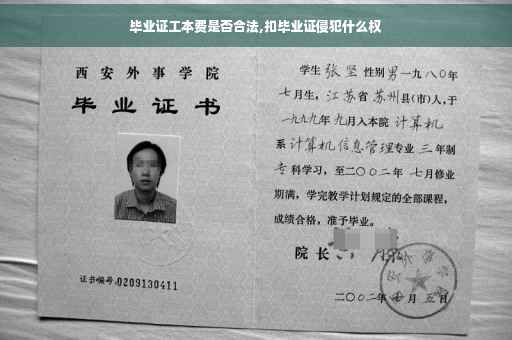 毕业证工本费是否合法,扣毕业证侵犯什么权
西安外事学院
毕业证书
证书编号:0209130411
学生 张坚 性别 男 一九八〇年
七月生，江苏省 苏州县(市)人,于
一九九九年 九月入本院 计算机
系 计算机信息管理专业 三 年制
专科学习，至二〇〇二年 七月修业
期满，学完教学计划规定的全部课程，
成绩合格，准予毕业。
院长
二〇〇二年 七月 五日